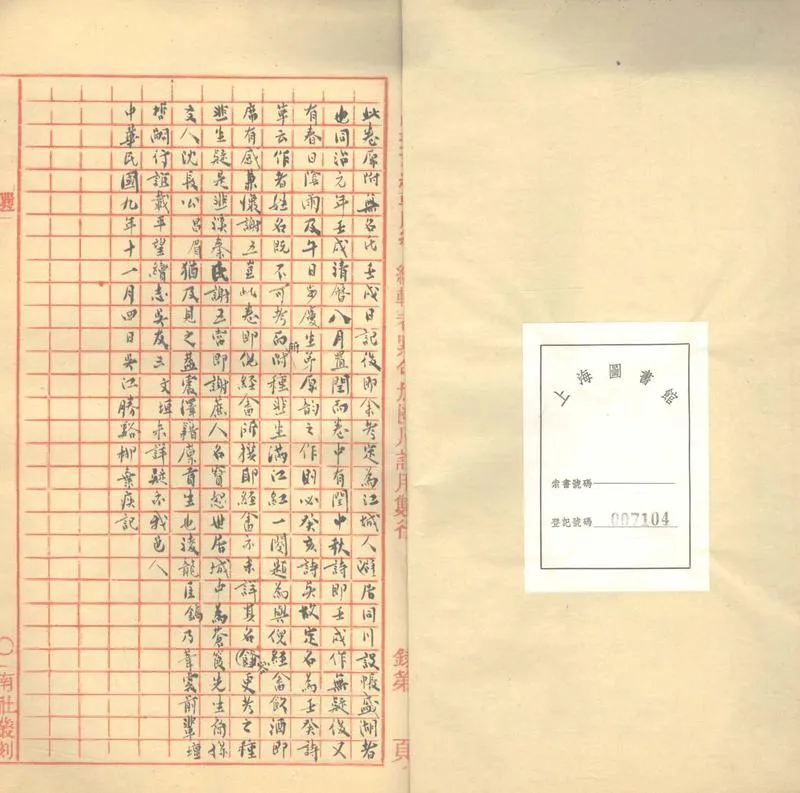 此卷原附無名氏壬戌日記後即余考定為江城人避居同川設帳盛湖者
也同治元年壬戌清曆八月置閏而卷中有閏中秋詩即壬戌作無疑後又
有春日陰雨及午日安慶生弟原韵之作則必癸亥詩矣故定名為壬癸詩
草云作者姓名既不可考而所附種韭生滿江紅一闋題為與倪經畬飲酒即
席有感兼懷謝五豈此卷即倪經畬所撰耶經畬亦未詳其名 更考之種
韭生疑是韭溪秦氏謝五當即謝蔗人名寶恕世居城中為蒼筤先生侍
交人沈長公昌眉猶及見之蓋震澤籍廩貢生也凌龍 乃 雲前輩
哲嗣行誼載平望續志吳友三文垣未詳疑亦我邑人
中華民國九年十一月四日吳江勝谿柳棄疾記
錄第 頁
南社叢刻
上海圖書館
索書號碼
登記號碼 007104